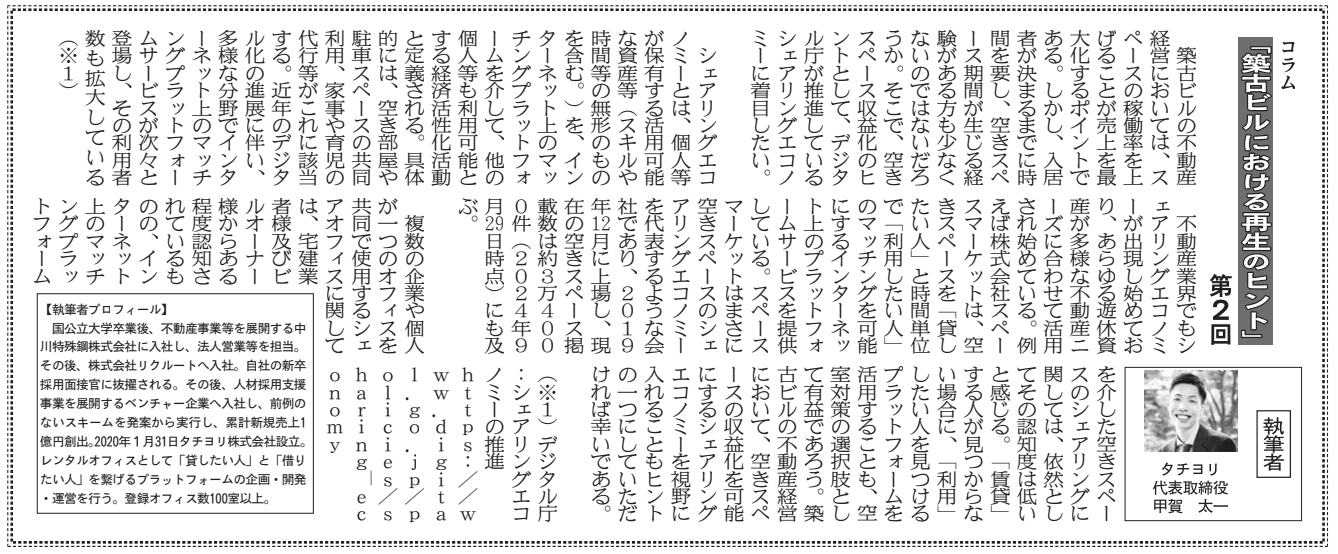 コラム
『築古ビルにおける再生のヒント』
第2回
築古ビルの不動産
経営においては、ス
ペースの稼働率を上
げることが売上を最
大化するポイントで
ある。しかし、入居
者が決まるまでに時
間を要し、空きスペ
ース期間が生じる経
験がある方も少なく
ないのではないだろ
うか。そこで、空き
スペース収益化のヒ
ントとして、デジタ
ル庁が推進している
シェアリングエコノ
ミーに着目したい。
シェアリングエコ
ノミーとは、個人等
が保有する活用可能
な資産等(スキルや
時間等の無形のもの
を含む。)を、イン
ターネット上のマッ
チングプラットフォ
ームを介して、他の
個人等も利用可能と
する経済活性化活動
と定義される。具体
的には、空き部屋や
駐車スペースの共同
利用、家事や育児の
代行等がこれに該当
する。近年のデジタ
ル化の進展に伴い、
多様な分野でインタ
ーネット上のマッチ
ングプラットフォー
ムサービスが次々と
登場し、その利用者
数も拡大している
(※1)
不動産業界でもシ
ェアリングエコノミ
ーが出現し始めてお
り、あらゆる遊休資
産が多様な不動産ニ
ーズに合わせて活用
され始めている。例
えば株式会社スペー
スマーケットは、空
きスペースを「貸し
たい人」と時間単位
で「利用したい人」
のマッチングを可能
にするインターネッ
ト上のプラットフォ
ームサービスを提供
している。スペース
マーケットはまさに
空きスペースのシェ
アリングエコノミー
を代表するような会
社であり、2019
年12月に上場し、現
在の空きスペース掲
載数は約3万400
0件(2024年9
月29日時点)にも及
ぶ。
複数の企業や個人
が一つのオフィスを
共同で使用するシェ
アオフィスに関して
は、宅建業
者様及びビ
ルオーナー
様からある
程度認知さ
れているも
のの、イン
ターネット
上のマッチ
ングプラッ
トフォーム
を介した空きスペー
スのシェアリングに
関しては、依然とし
てその認知度は低い
と感じる。「賃貸」
する人が見つからな
い場合に、「利用」
したい人を見つける
プラットフォームを
活用することも、空
室対策の選択肢とし
て有益であろう。築
古ビルの不動産経営
において、空きスペ
ースの収益化を可能
にするシェアリング
エコノミーを視野に
入れることもヒント
の一つにしていただ
ければ幸いである。
(※1)デジタル庁
:シェアリングエコ
ノミーの推進
https://w
ww.digita
l.go.jp/p
olicies/s
haring_ec
onomy
執筆者
タチヨリ
代表取締役
甲賀 太一
【執筆者プロフィール】
国公立大学卒業後、不動産事業等を展開する中
川特殊鋼株式会社に入社し、法人営業等を担当。
その後、株式会社リクルートへ入社。自社の新卒
採用面接官に抜擢される。その後、人材採用支援
事業を展開するベンチャー企業へ入社し、前例の
ないスキームを発案から実行し、累計新規売上1
億円創出。2020年1月31日タチヨリ株式会社設立。
レンタルオフィスとして「貸したい人」と「借り
たい人」を繋げるプラットフォームの企画・開発
・運営を行う。登録オフィス数100室以上。